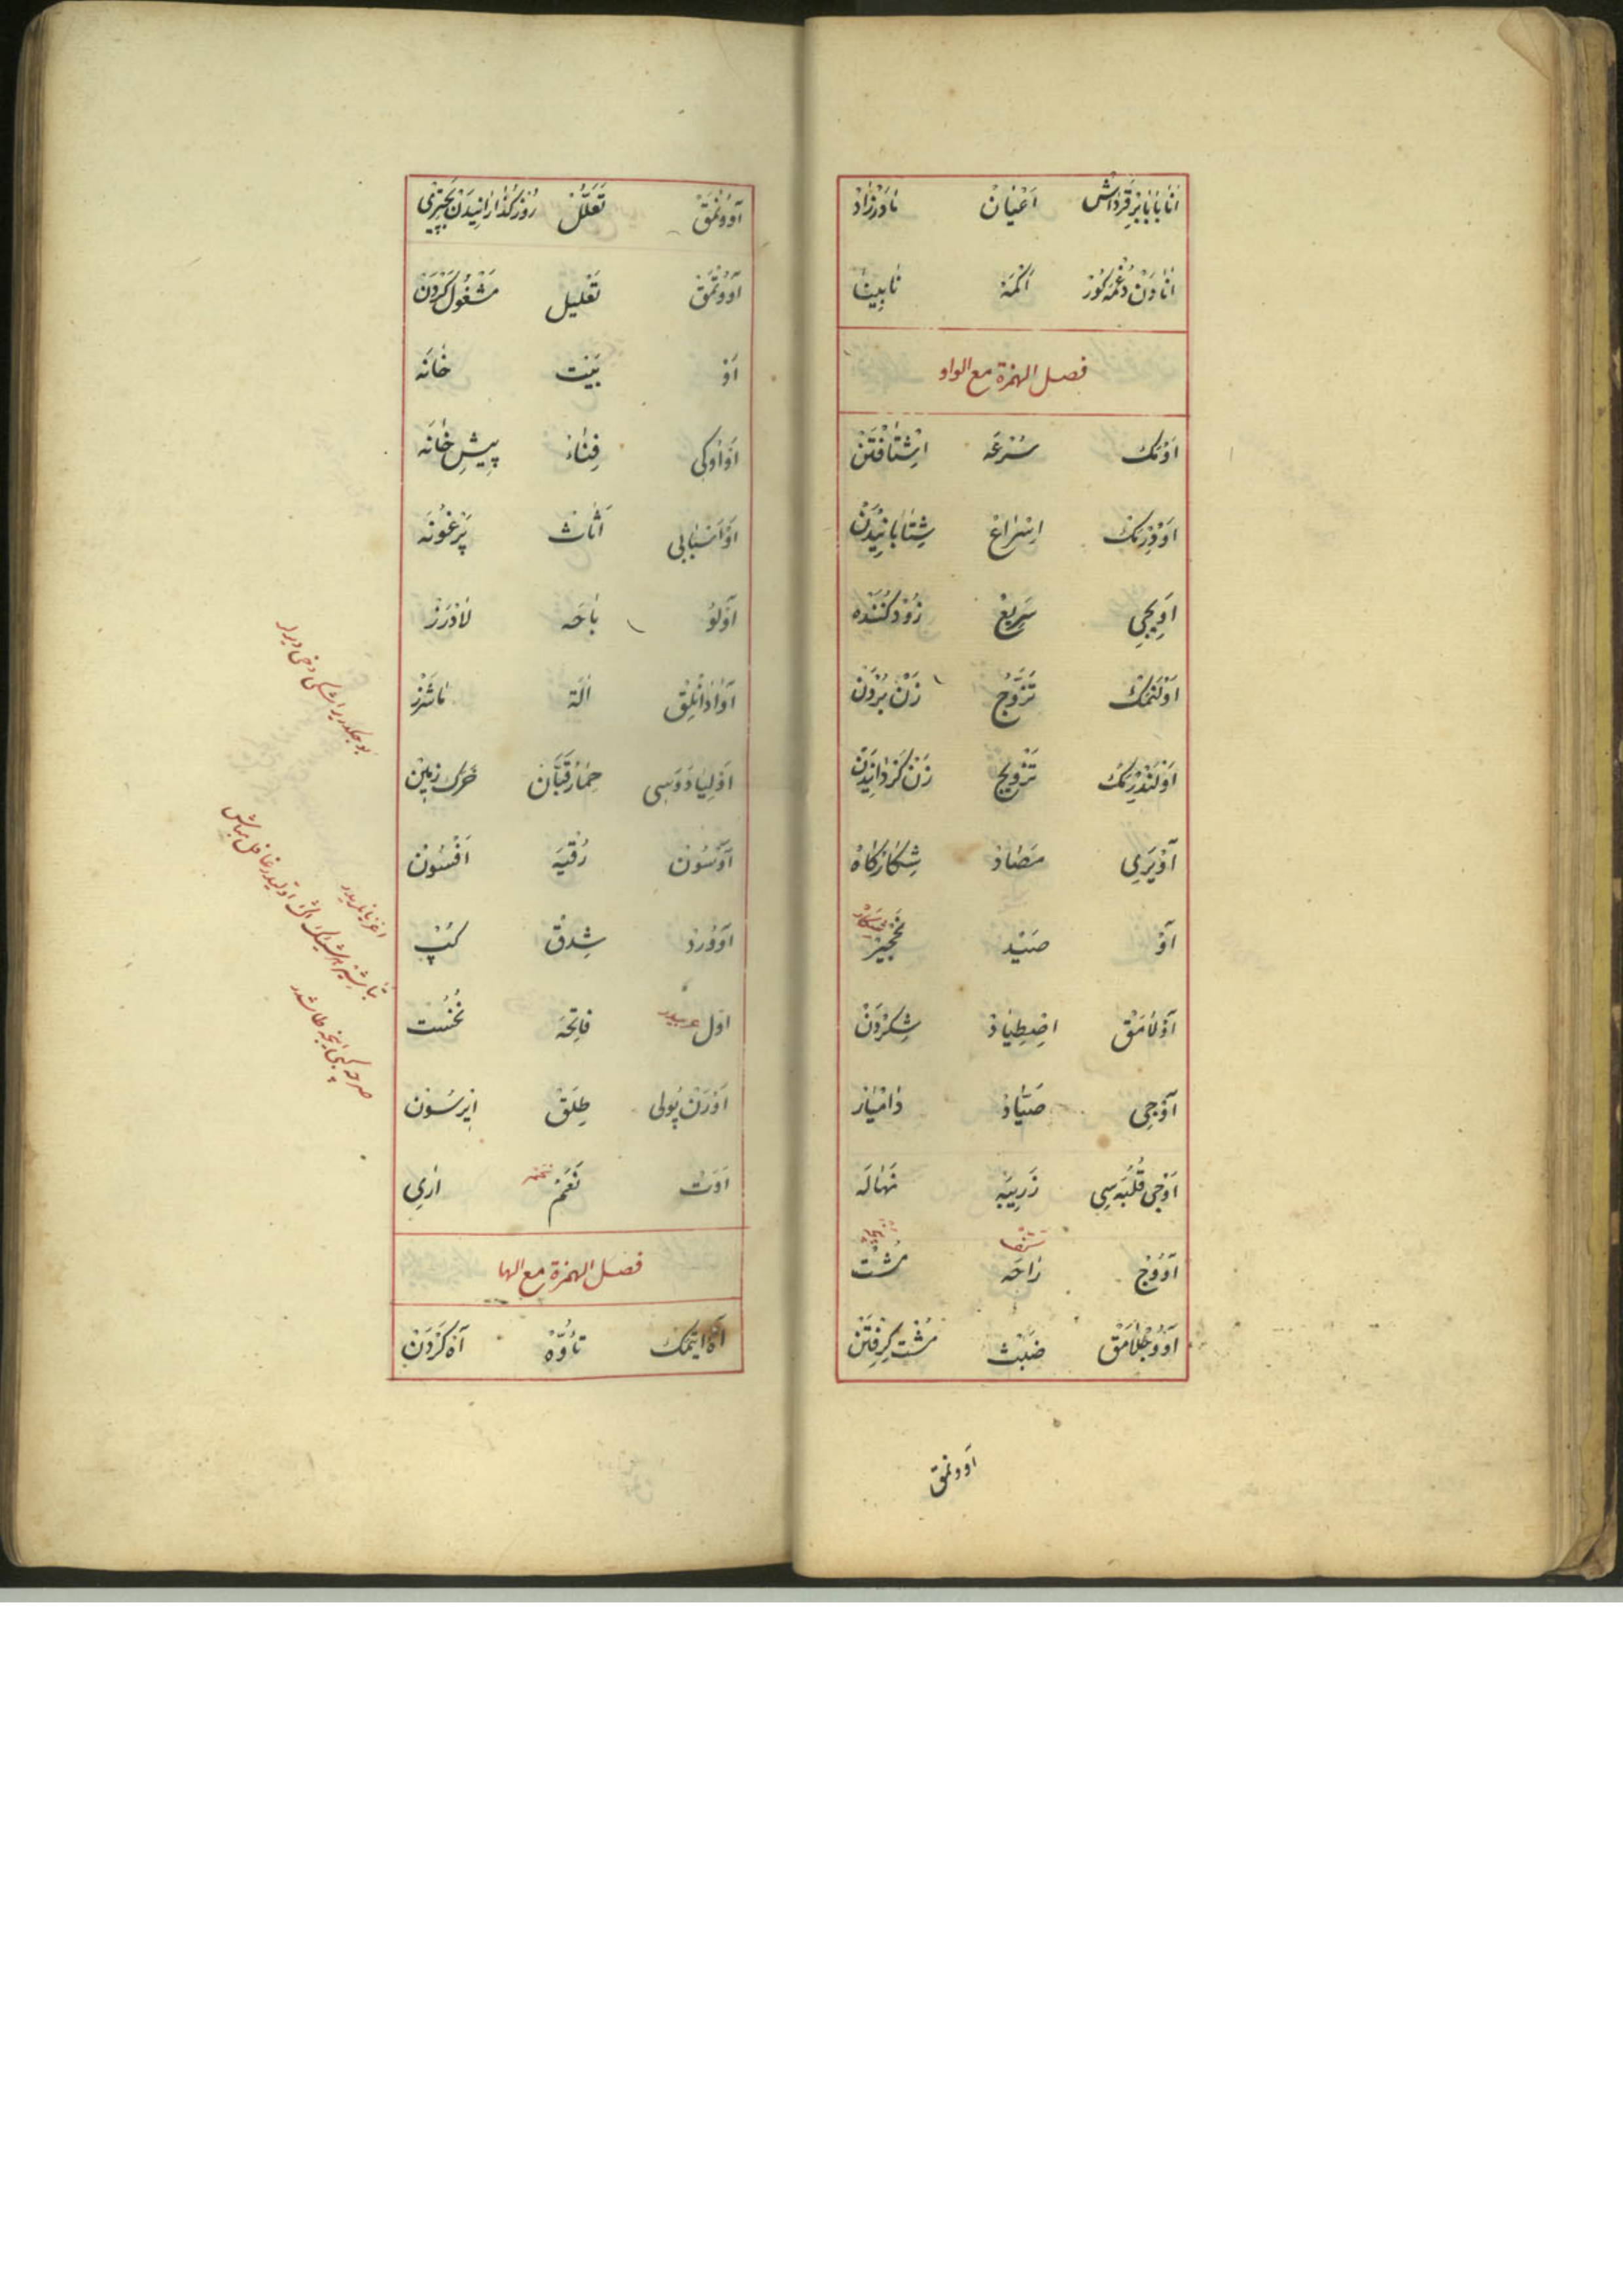 انا بابا بر قرداش اعیان مادرزاد
انادن دغمه کوز اکمه نابینا
فصل الهمزة مع الواو
اومک سرعه اشتافتن
اودرمک اسراع شتابانیدن
اویجی سریع زود کننده
اولنمک تزوج زن بردن
اولندرمک تزویج زن کردانیدن
آویری مصاد شکارگاه
آو صید نخجیر شکار
آولامق اصطیاد شکردن
آوجی صیاد دامیار
اوجی قلبه سی زریبه نهاله
آووج راحه مشت
آووجلامق ضبث مشت گرفتن
اوونمق
آوونمق تعلل روزگذارانیدن بچیزی
آووتمق تعلیل مشغول کردن
او بیت خانه
او اوکی فناء پیش خانه
او اسبابی اثاث پرغونه
آولو باحه لادرز
آوادانلق الة
اولیا دوه سی حمار قبان خرک زمین
آوسون رقیه افسون
آوورد شدق کپ
اول عربیدر فاتحه نخست
اورن پولی طلق ایرسون
اوت نعم اری
فصل الهمزة مع الها
آه ایتمک تأوه آه کردن